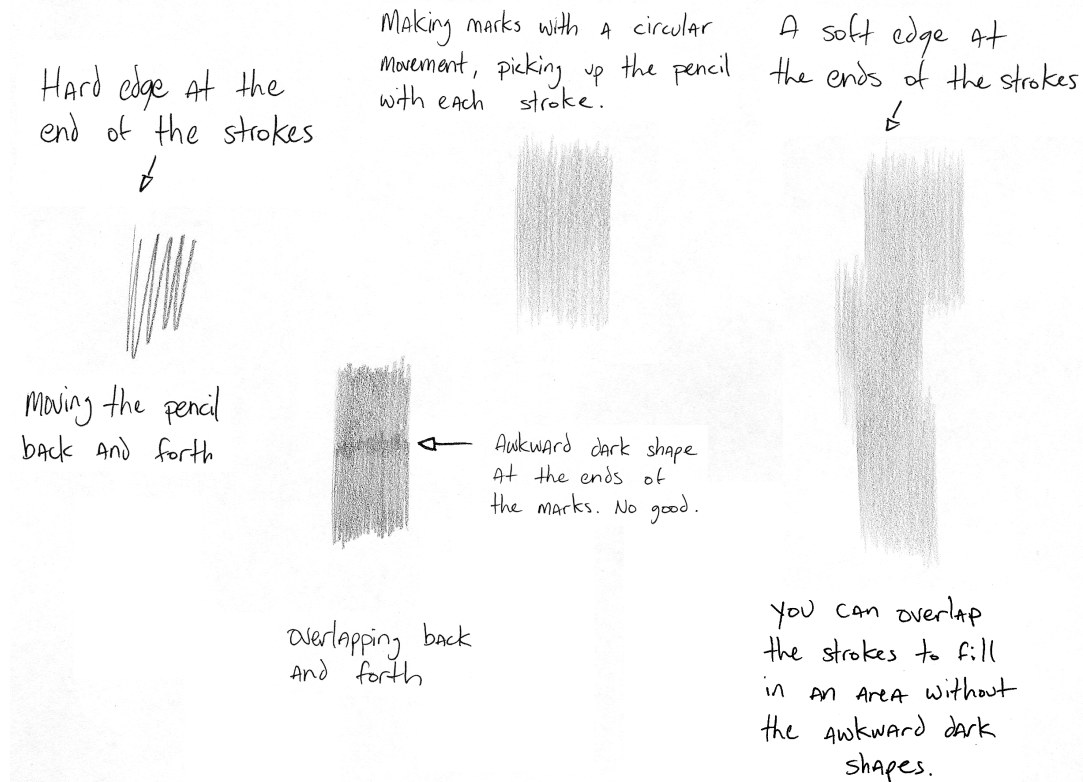 Hard edge at the
end of the strokes
Moving the pencil
back and forth
Making marks with a circular
movement, picking up the pencil
with each stroke.
Awkward dark shape
at the ends of
the marks. No good.
overlapping back
and forth
A soft edge at
the ends of the strokes
you can overlap
the strokes to fill
in an area without
the awkward dark
shapes.